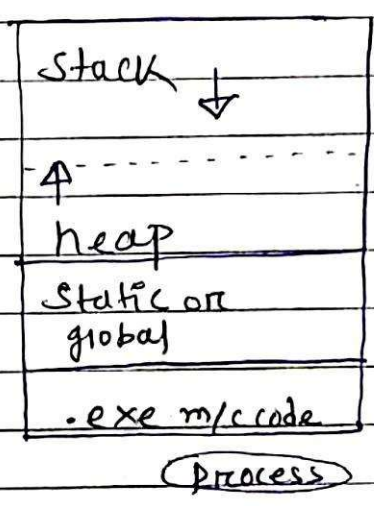 Stack
heap
Static or
global
.exe m/c code
process